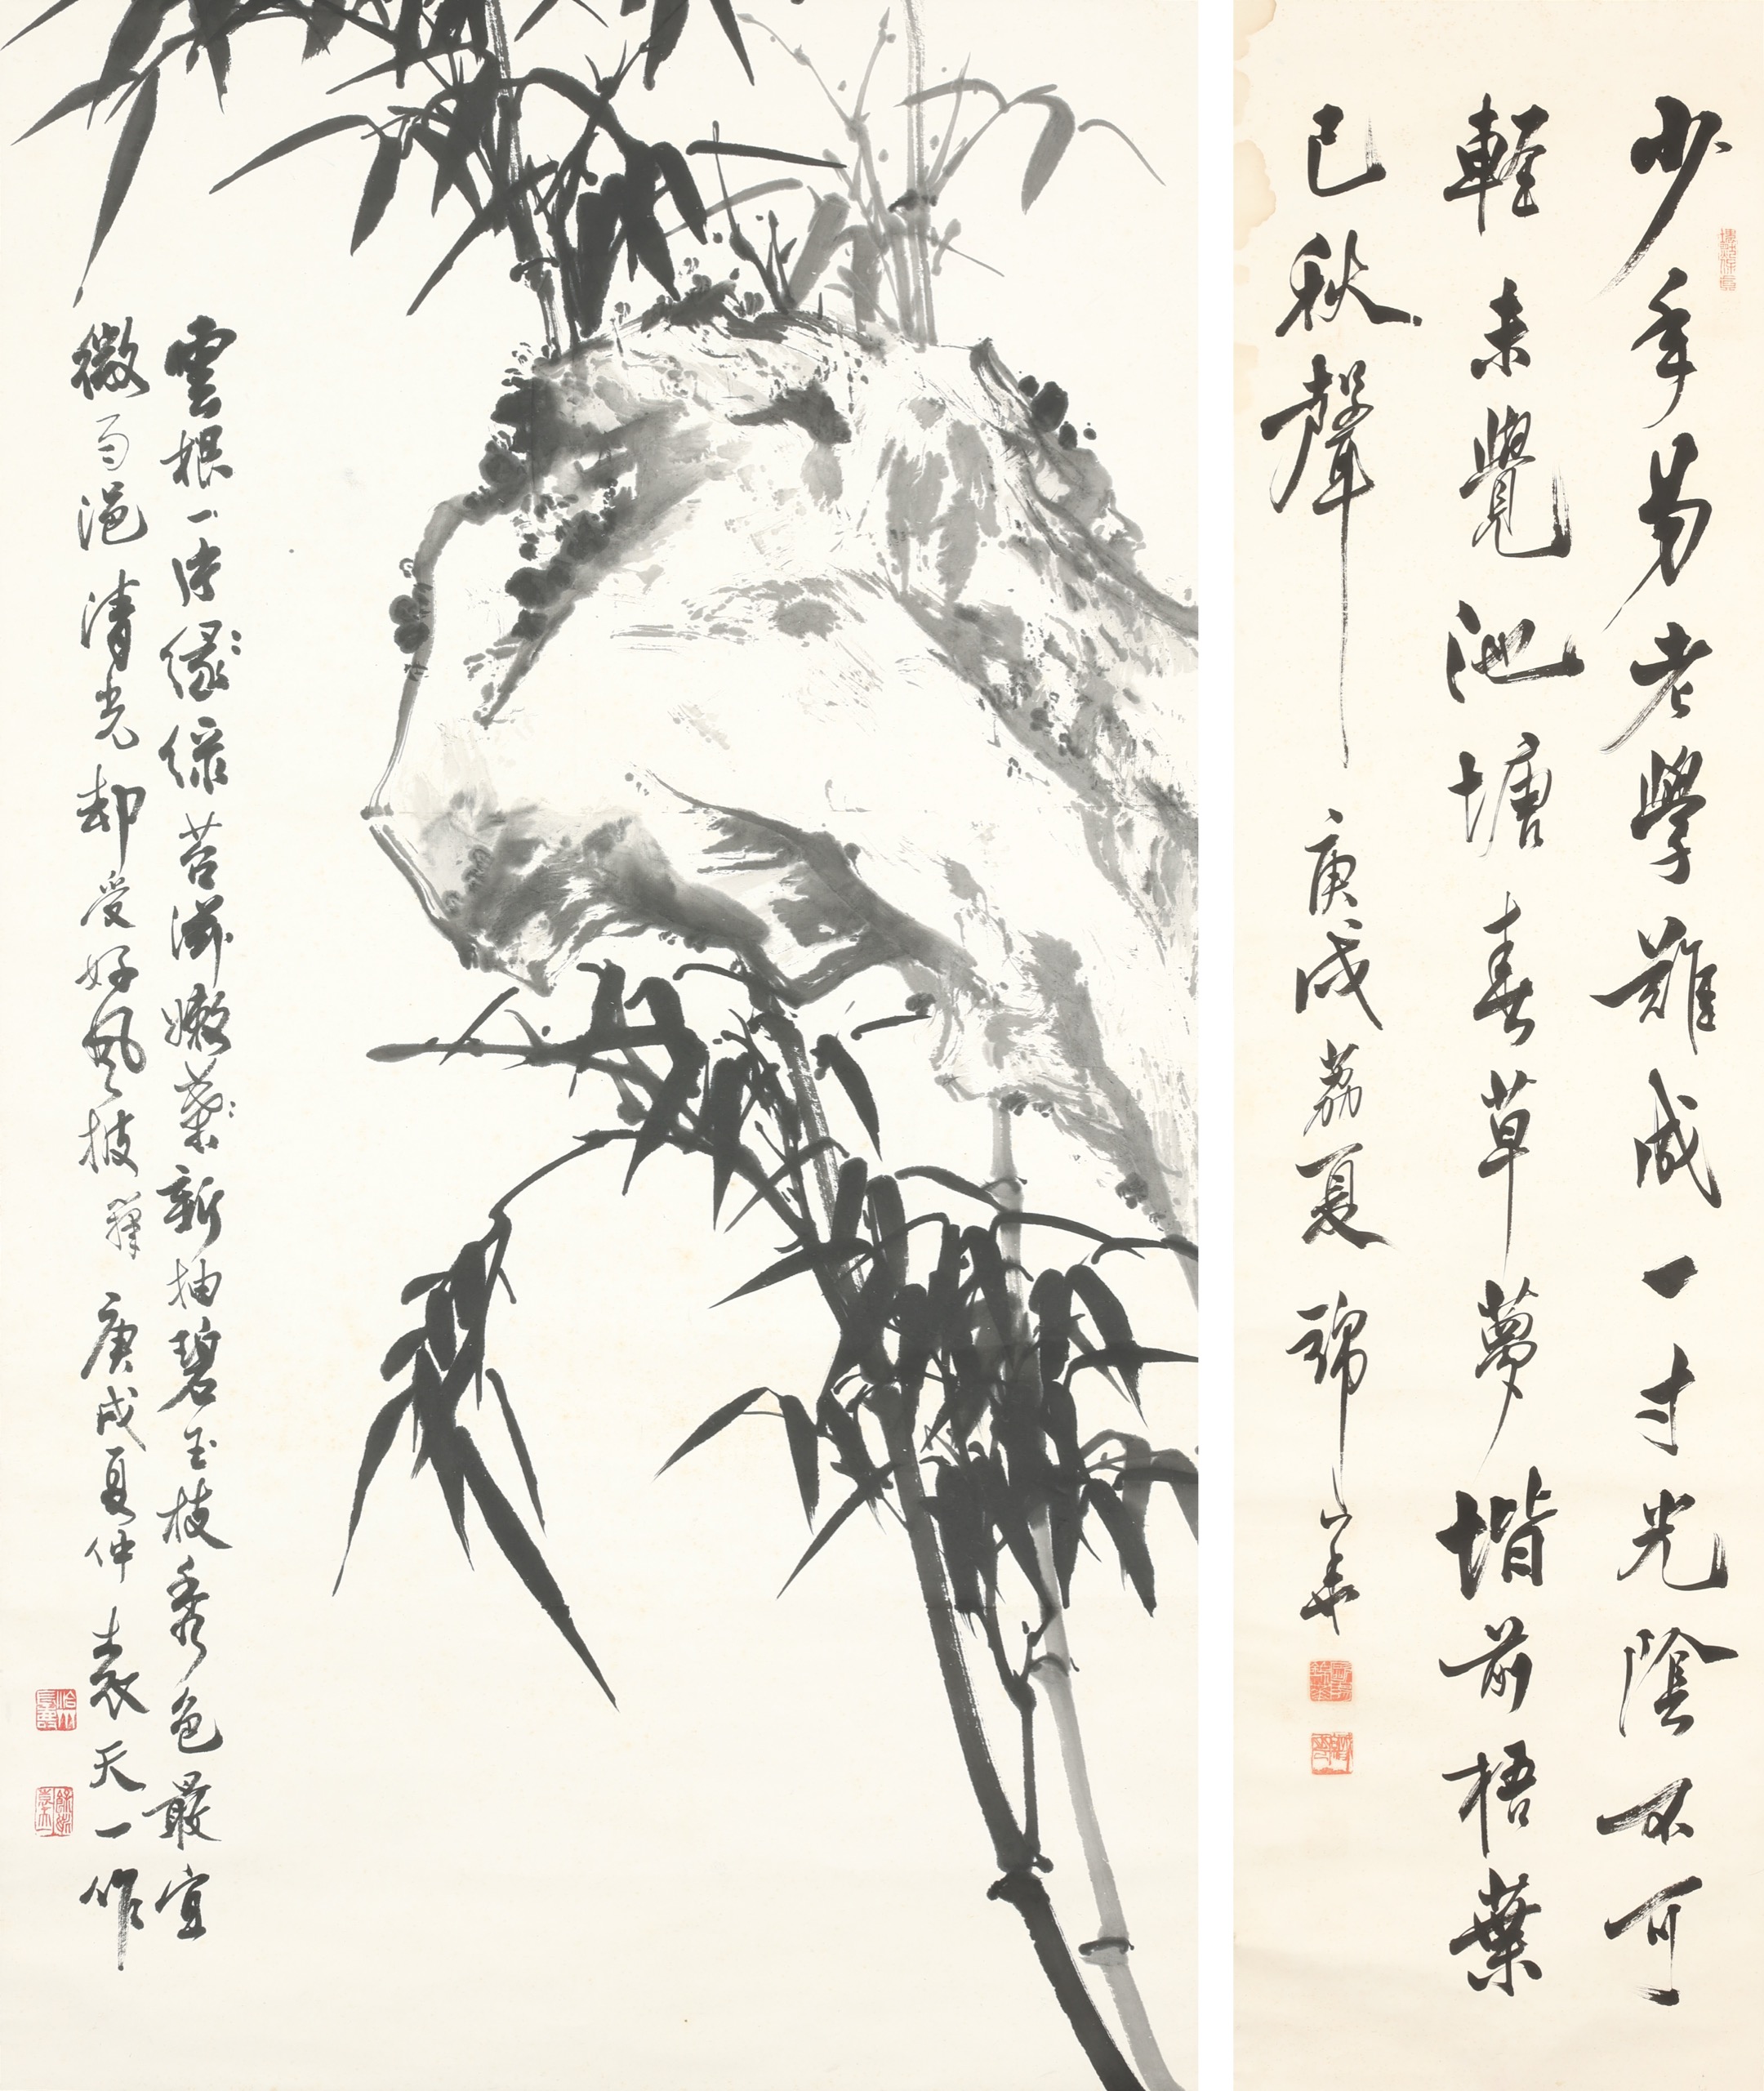 少年易老學難成一寸光陰不可
輕未覺池塘春草夢堦前梧葉
已秋聲 庚戌荔夏 錦山
雲根一片緣綠苔滋嫩葉新抽碧玉枝秀色最宜
微雨浥清光却受好風披 籜 庚戌夏仲 袁天一作